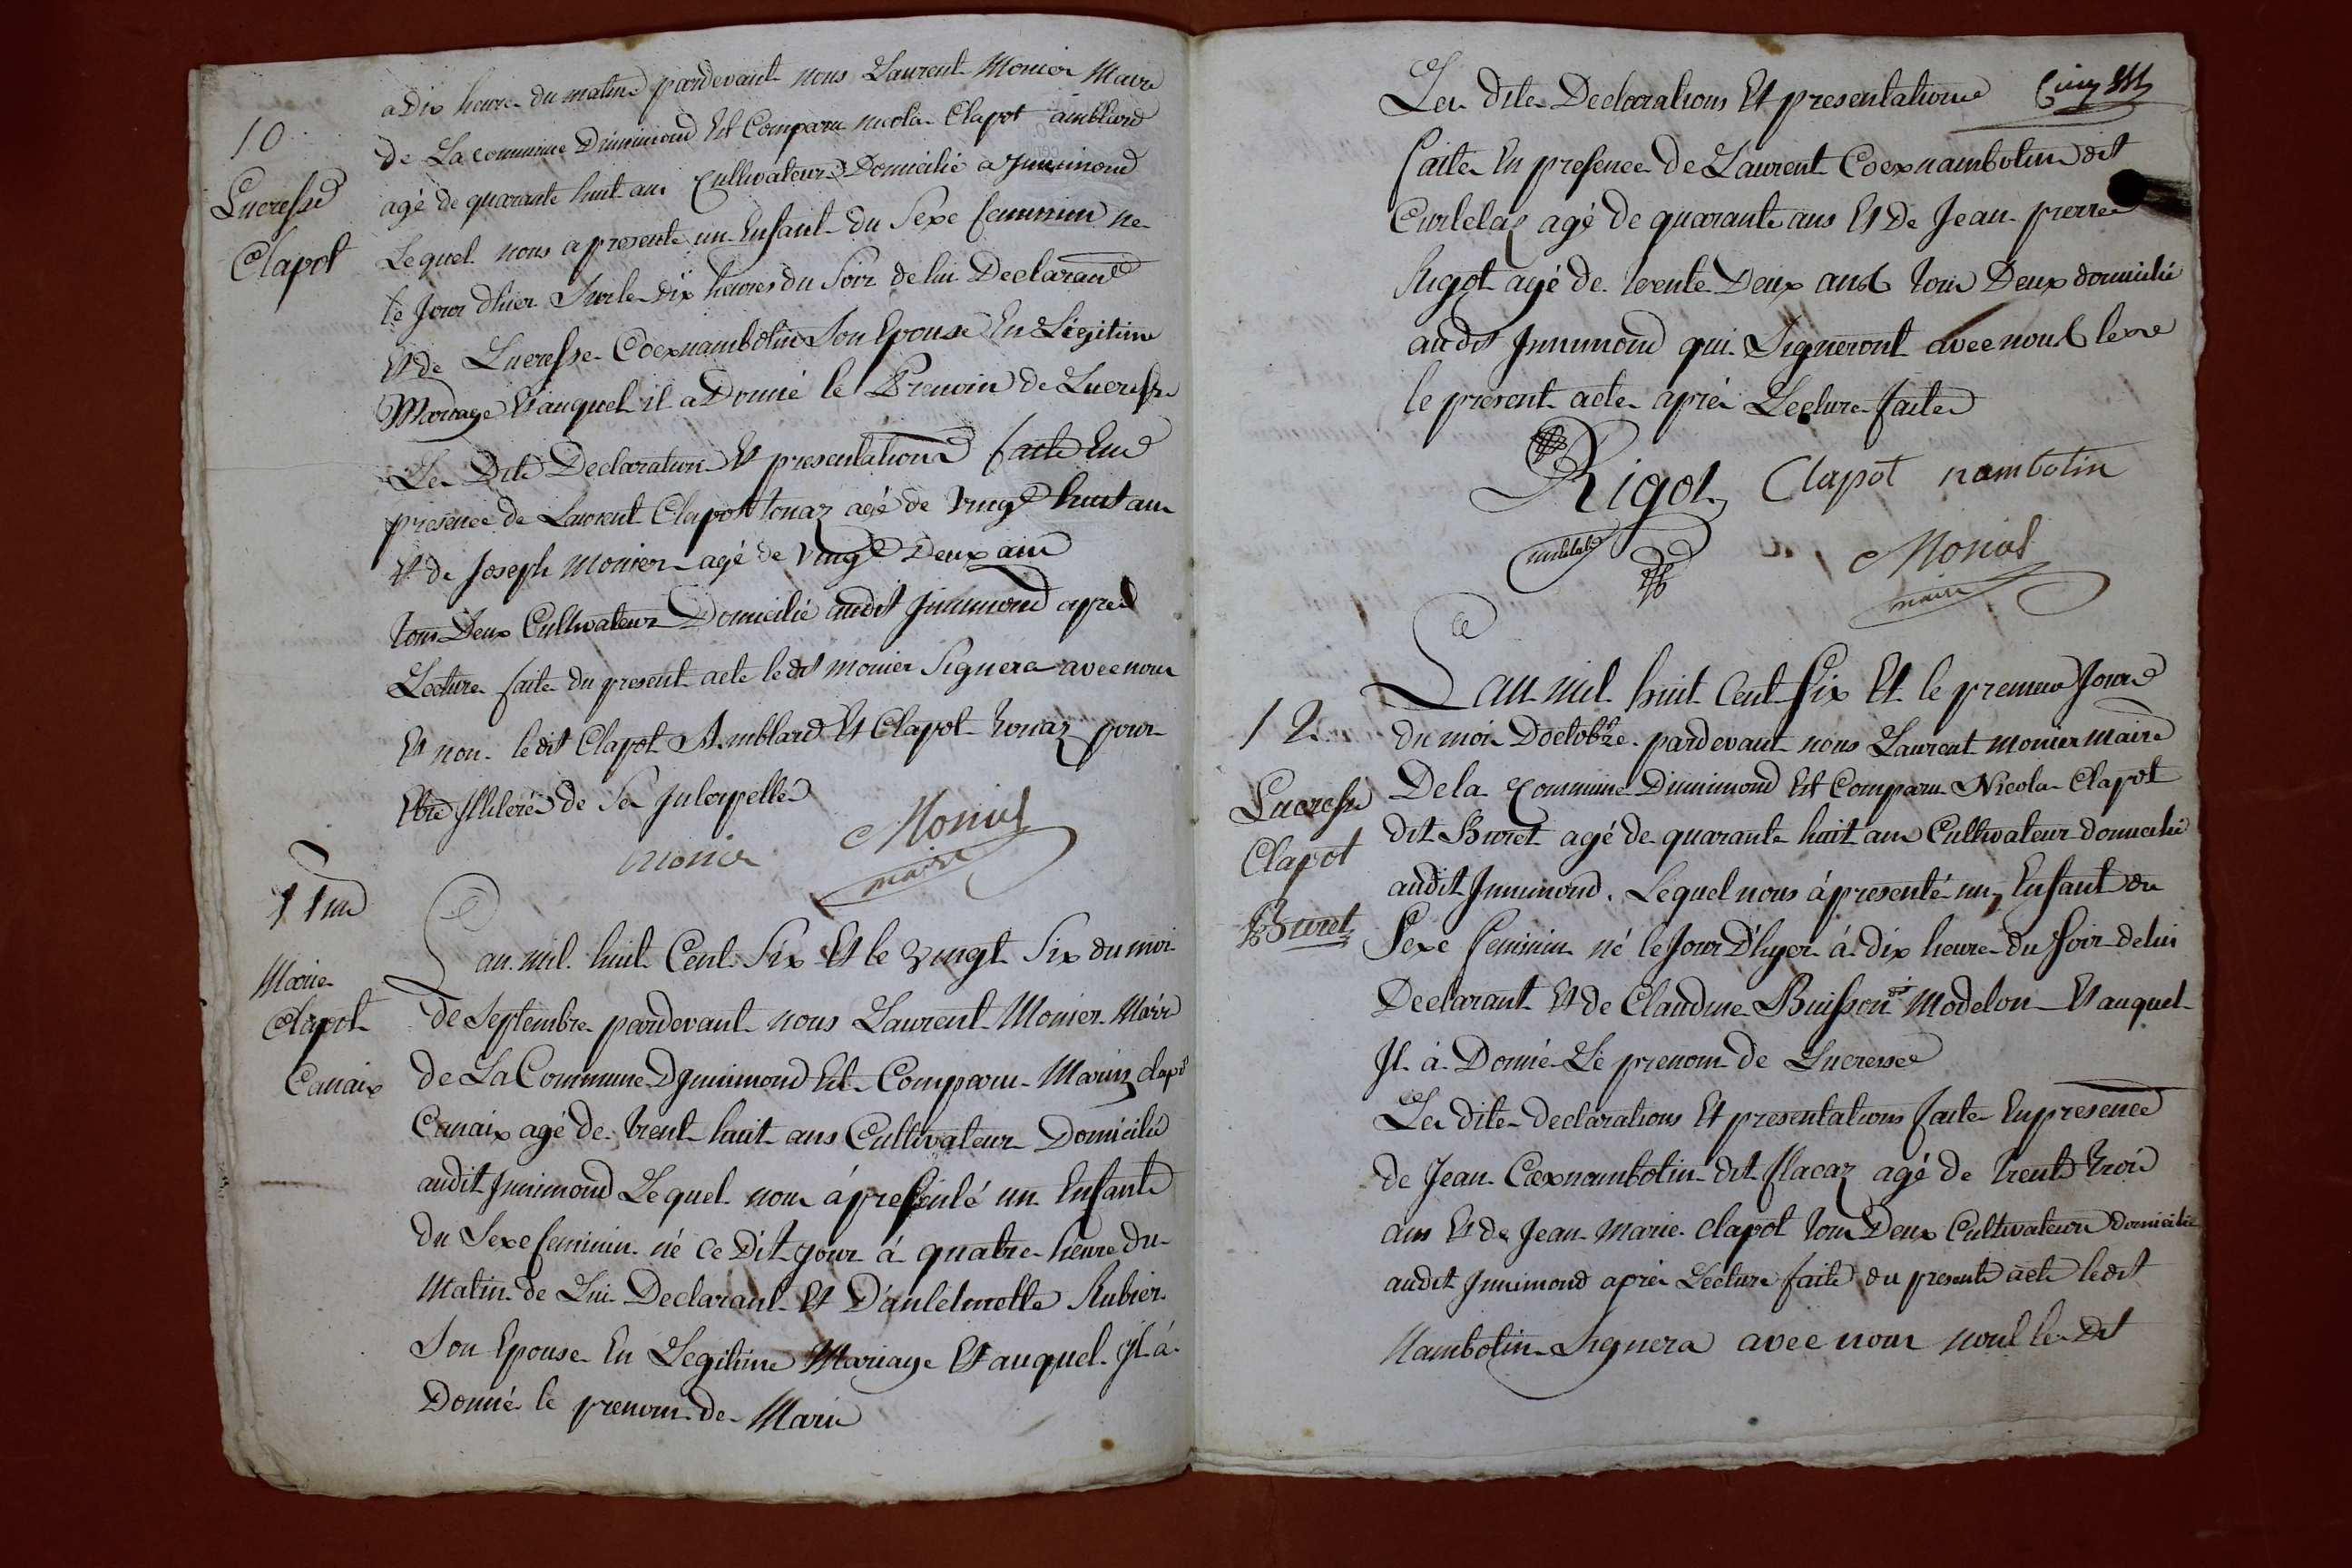 10
Lucresse
Clapot
a Dix heure du matin pardevant nous Laurent Monier Maire
de La commune Dinnimond Est Comparu nicola Clapot amblard
agé de quarante huit ans Cultivateur Domicilié a Jnnimond
Lequel nous a presenté un Enfant du Sexe feminin né
le Jour d'hier Sur les dix heures du Soir de lui Declarant
Et de Lucresse Coexnambotin Son Epouse En Légitime
Mariage Et auquel il a Donné le Prenom de Lucresse
Les Dite Declaration Et presentation faite En
presence de Laurent Clapot touaz agé de Vingt huit ans
Et de Joseph Monier agé de Vingt Deux ans
tous Deux Cultivateur Domicilié audit Jnnimond apres
Lecture faite du present acte le dit monier Signera avec nous
Et non le dit Clapot Amblard Et Clapot touaz pour
Etre Jlliteré de Se Jnterpellé
monier Monier
maire
11me
Marie
Clapot
Canaix
Lan mil huit Cent Six Et le Vingt Six du moi
de Septembre pardevant nous Laurent Monier Maire
de La Commune DJnnimond Est Comparu Marin clapot
Canaix agé de trent huit ans Cultivateur Domicilié
audit Jnnimond Lequel nous á presenté un Enfant
du Sexe feminin né ce Dit jour á quatre heure du
Matin de Lui Declarant Et D'antelmette Rubier
Son Epouse En Legitime Mariage Et auquel Jl á
Donné le prenom de Marie
Les dite Declarations Et presentations
faite En presence de Laurent Coexnambotin dit
Curtelaz agé de quarante ans Et de Jean pierre
Rigot agé de trente Deux ans tous Deux domicilié
audit Jnnimond qui Signeront avec nous le
le present acte aprés Lecture faite
Rigot Clapot nambotin
Monier
maire
12
Lucresse
Clapot
Buret
Lan mil huit Cent Six Et le premier Jour
du moi Doctobre pardevant nous Laurent monier maire
De la Commune Dinnimond Est Comparu Nicola Clapot
dit Buret agé de quarante huit ans Cultivateur domicilié
audit Jnnimond Lequel nous á presenté un Enfant du
Sexe feminin né le Jour D'hyer á dix heure du Soir de lui
Declarant Et de Claudine Buisson dit Modelon Et auquel
Jl á Donné Le prenom de Lucresse
Les dite declarations Et presentations faite En presence
de Jean Coexnambotin dit flacaz agé de trente trois
ans Et de Jean Marie Clapot tous Deux Cultivateur domicilié
audit Jnnimond aprés Lecture faite du present acte ledit
Nambotin Signera avec nous non le Dit